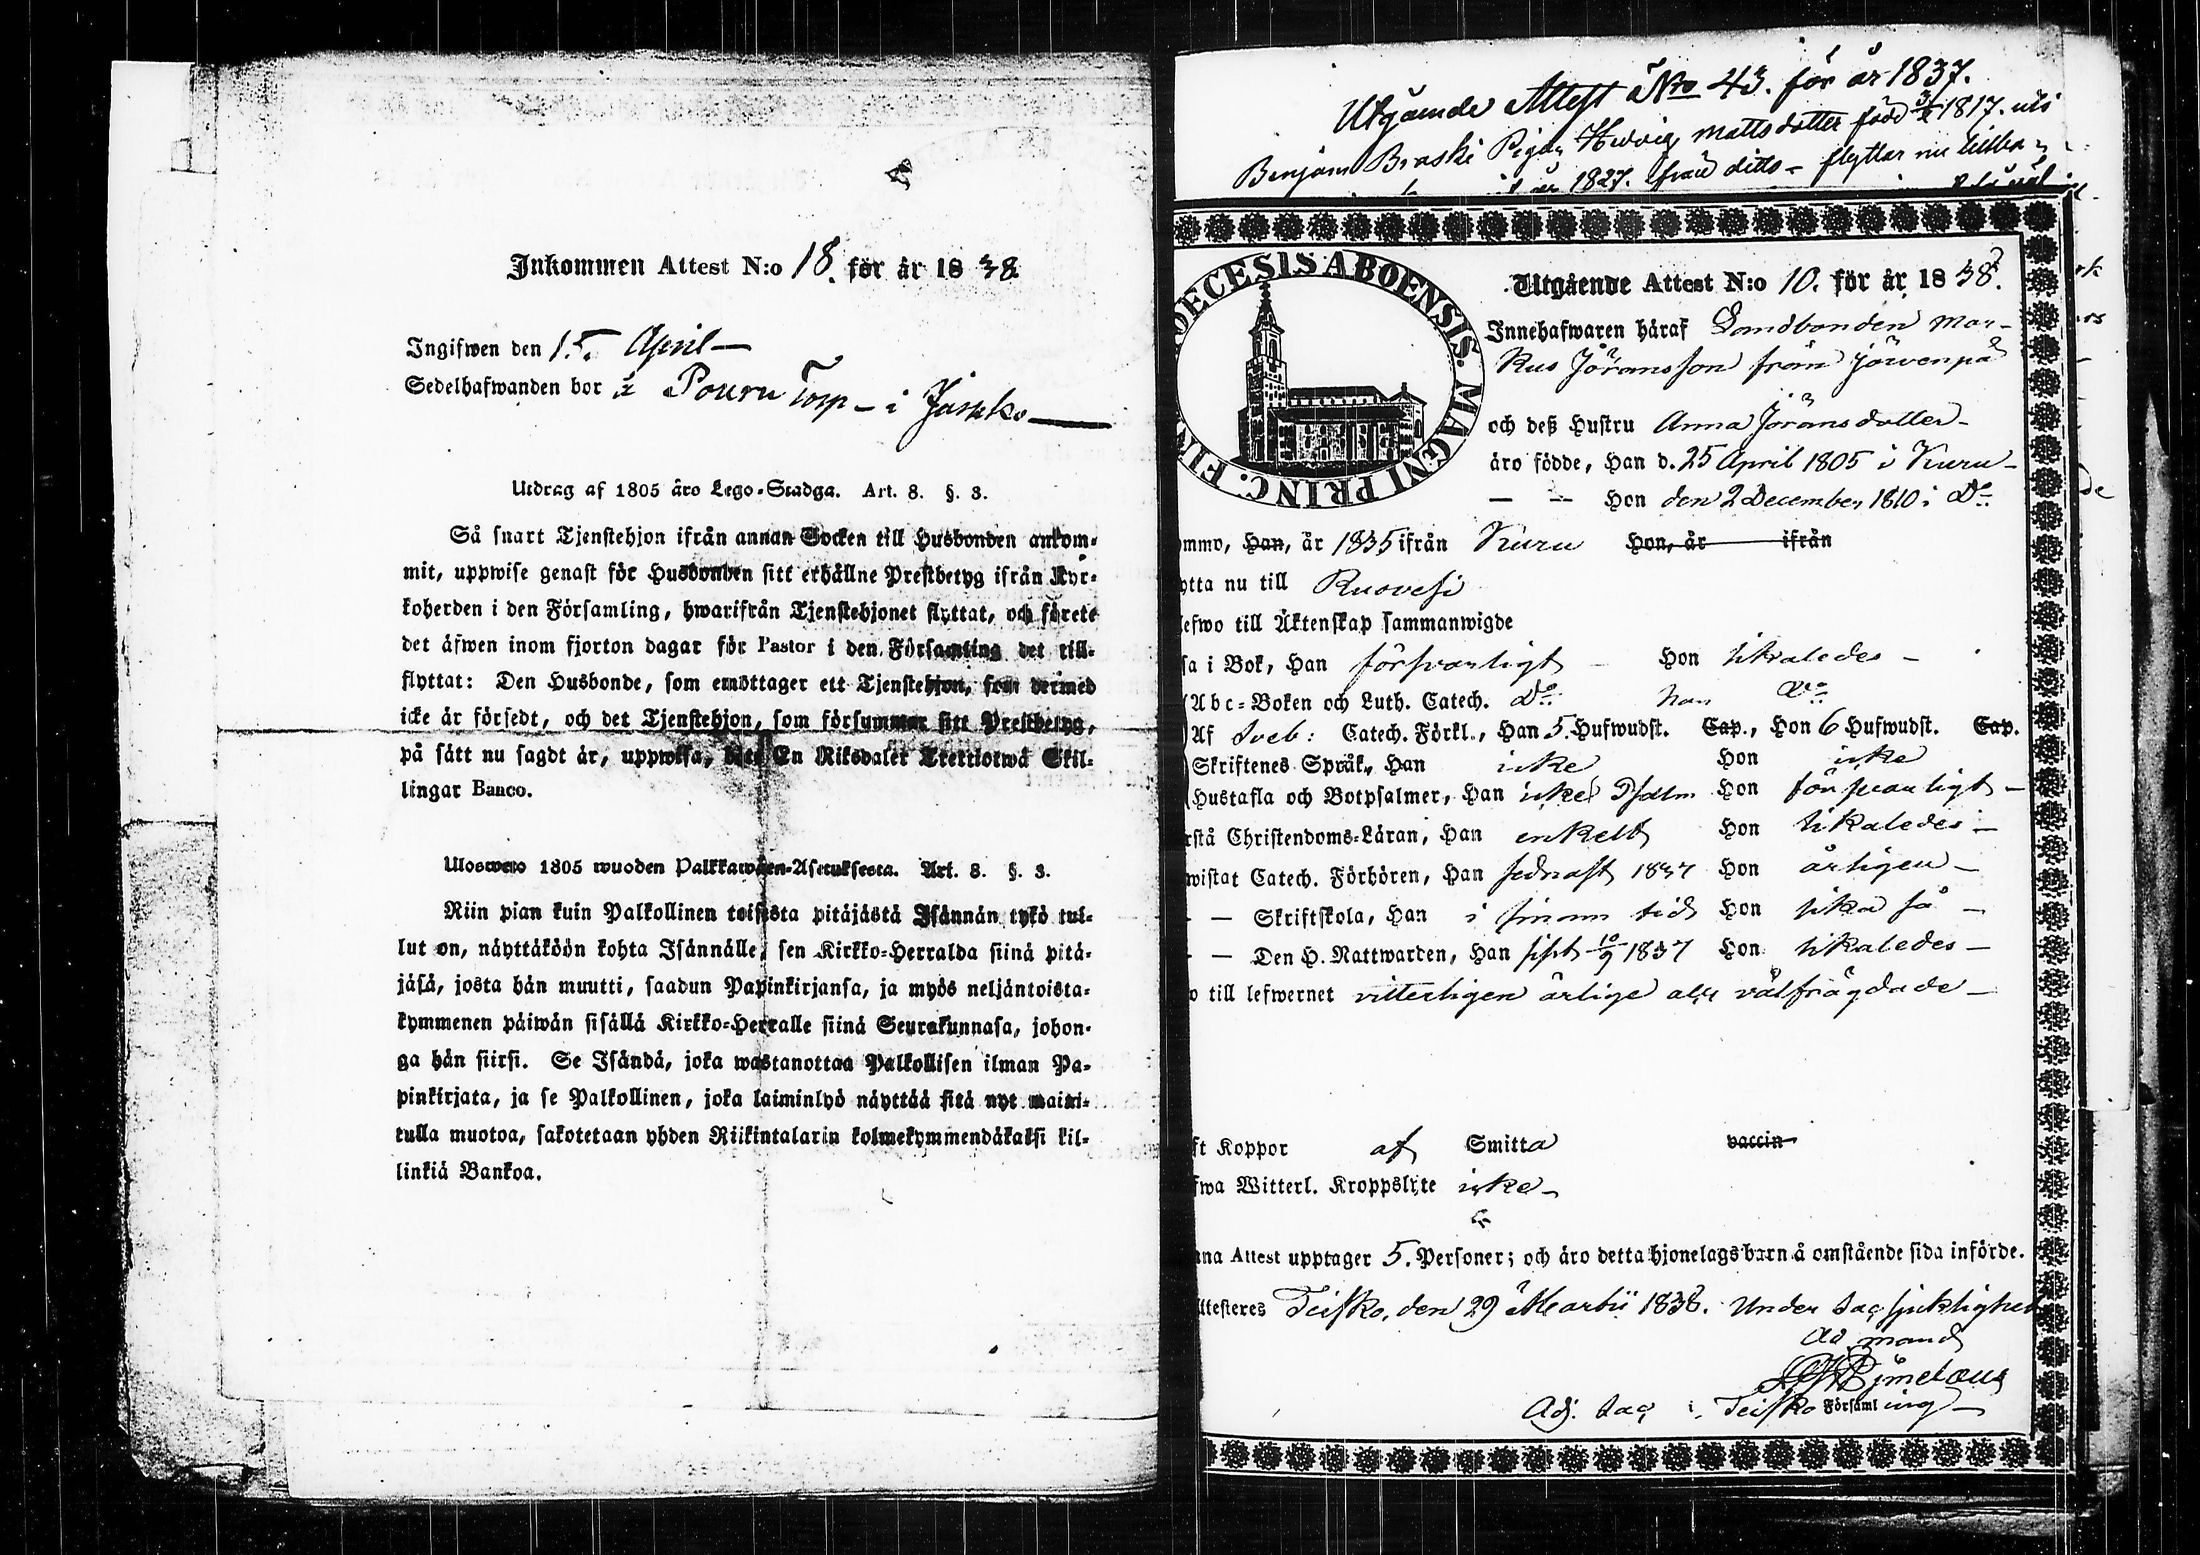 Inkommen Attest N:o 18. för år 1838
Ingifwen den 15. April —
Sedelhafwanden bor i Pouru Torp – i Jäseko —
Utdrag af 1805 års Lego-Stadga. Art. 8. §. 3.
Så snart Tjenstehjon ifrån annan Socken till Husbonden ankom-
mit, uppwise genast för Husbonden sitt erhållne Prestbetyg ifrån Kyr-
koherden i den Församling, hwarifrån Tjenstehjonet flyttat, och förete
det äfwen inom fjorton dagar för Pastor i den Församling det till-
flyttat: Den Husbonde, som emottager ett Tjenstehjon, som dermed
icke är försedt, och det Tjenstehjon, som försummar sitt Prestbetyg,
på sätt nu sagdt är, uppwisa, böte En Riksdaler Trettiotwå Skil-
lingar Banco.
Uloswero 1805 wuoden Palkkawäen-Asetuksesta. Art. 8. §. 3.
Niin pian kuin Palkollinen toisesta pitäjästä Isännän tykö tul-
lut on, näyttäköön kohta Isännälle, sen Kirkko-Herralda siinä pitä-
jäsä, josta hän muutti, saadun Papinkirjansa, ja myös neljäntoista-
kymmenen päiwän sisällä Kirkko-Herralle siinä Seurakunnasa, johon-
ga hän siirsi. Se Isändä, joka wastanottaa Palkollisen ilman Pa-
pinkirjata, ja se Palkollinen, joka laiminlyö näyttää sitä nyt mainit-
tulla muotoa, sakotetaan yhden Riikintalarin kolmekymmendäkaksi kil-
linkiä Bankoa.
Utgående Attest No 43. för år 1837.
Benjam Braski Pigan Hedvig Mattsdotter född 1817. uti
år 1827. ifrån ditto – flyttar nu tillba
DIOECESIS ABOENSIS. MAGNI PRINC. FIN
Utgående Attest N:o 10. för år 1838.
Innehafwaren häraf Landbonden Mar-
kus Jöransson från Jörvenpä
och deß Hustru Anna Jöransdotter –
äro födde, Han d. 25 April 1805 i Kuru –
— — Hon den 2 December 1810 i Do
ommo, Han, år 1835 ifrån Kuru Hon, år ifrån
ytta nu till Ruovesi
lefwo till Äktenskap sammanwigde
sa i Bok, Han försvarligt – Hon likaledes –
Abc-Boken och Luth. Catech. Do han Do
Af Sveb: Catech. Förkl., Han 5. Hufwudst. Cap., Hon 6 Hufwudst. Cap.
Skriftenes Språk, Han icke Hon icke
Hustafla och Botpsalmer, Han icke Psalm Hon försvarligt –
rstå Christendoms-Läran, Han enkelt Hon likaledes –
wistat Catech. Förhören, Han sednast 1837 Hon årligen –
— Skriftskola, Han i sinom tid Hon lika så –
— Den H. Nattwarden, Han sist 10/9 1837 Hon likaledes –
o till lefwernet vitterligen ärlige och välfrägdade –
ft Koppor af Smitta vaccin
fwa Witterl. Kroppslyte icke –
nna Attest upptager 5. Personer; och äro detta hjonelags barn å omstående sida införde.
ttesteres Teisko, den 29 Martii 1838. Under Sac. sjuklighet
Ad mand
Adj. Sac. i. Teisko Församling –